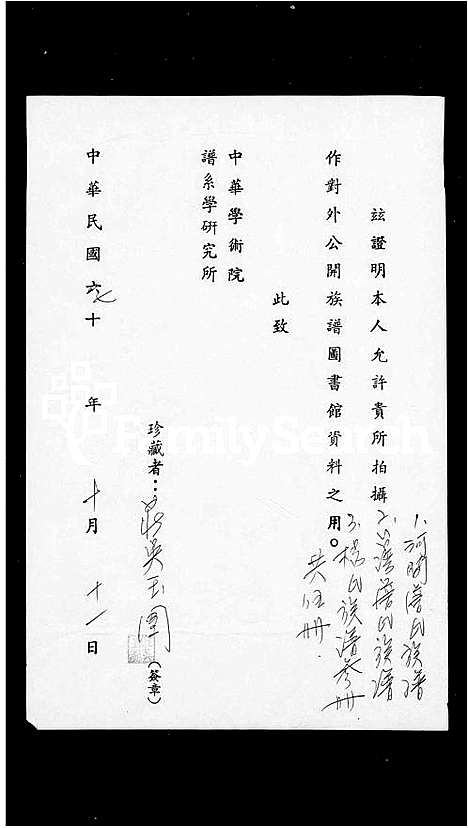 茲證明本人允許貴所拍攝
1.河間詹氏族譜
2.詹氏族譜
3.楊氏族譜參冊
共伍冊.
作對外公開族譜圖書館資料之用。
此致
中華學術院
譜系學研究所
珍藏者：吳玉
(簽章)
中華民國六十七年十月十一日
FamilySearch